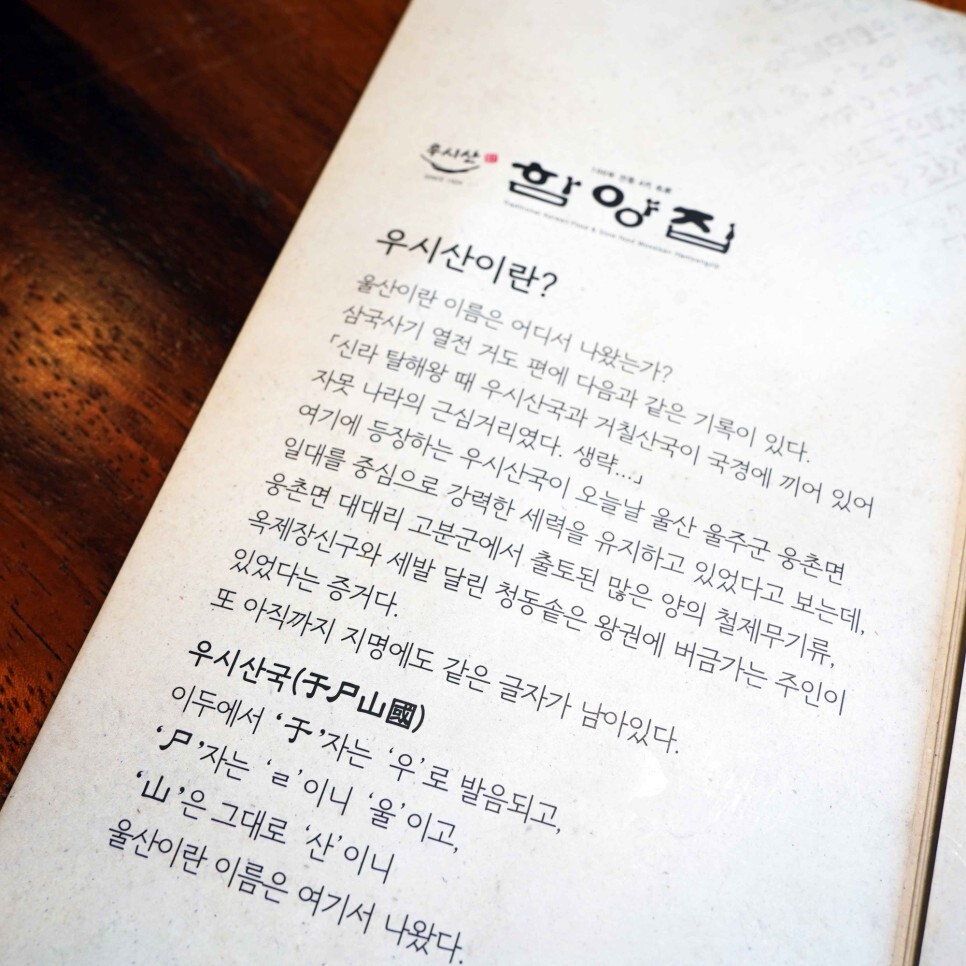 우시산
함양집
Traditional Korean Food & Slow food
우시산이란?
울산이란 이름은 어디서 나왔는가?
삼국사기 열전 거도 편에 다음과 같은 기록이 있다.
「신라 탈해왕 때 우시산국과 거칠산국이 국경에 끼어 있어
자못 나라의 근심거리였다. 생략...」
여기에 등장하는 우시산국이 오늘날 울산 울주군 웅촌면
일대를 중심으로 강력한 세력을 유지하고 있었다고 보는데,
웅촌면 대대리 고분군에서 출토된 많은 양의 철제무기류,
옥제장신구와 세발 달린 청동솥은 왕권에 버금가는 주인이
있었다는 증거다.
또 아직까지 지명에도 같은 글자가 남아있다.
우시산국(于尸山國)
이두에서 ‘于’자는 ‘우’로 발음되고,
‘尸’자는 ‘ㄹ’이니 ‘울’이고,
‘山’은 그대로 ‘산’이니
울산이란 이름은 여기서 나왔다.